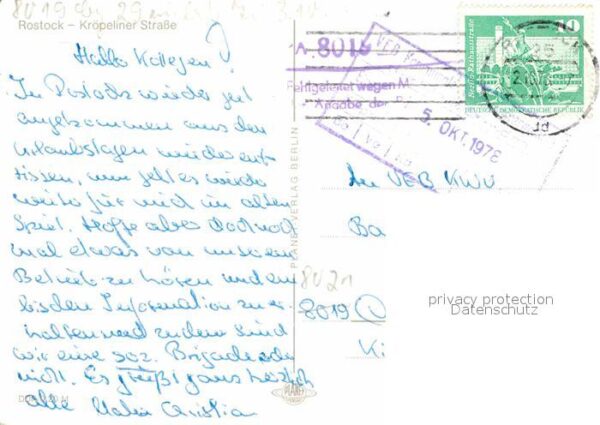 8019
29
Rostock - Kröpeliner Straße
Hallo Kollegen!
In Rostock wieder gut
angekommen aus den
Urlaubstagen wieder ent-
rissen, nun geht es wieder
weiter für mich im alten
Spiel. Hoffe aber doch noch
mal etwas von unserem
Betrieb zu hören und ein
bischen Information zu er-
halten und zudem sind
wir eine soz. Brigade oder
nicht. Es grüßt ganz herzlich
alle
Christian
M
PLANET-VERLAG BERLIN
A 8016
VEB
Fehlgeleitet wegen
Angabe der
5. OKT. 1978
25
10
Berlin, Rathausstraße
DEUTSCHE DEMOKRATISCHE REPUBLIK
An VEB KWV
Ba
8021
8019
Ki
privacy protection
Datenschutz
PLANET